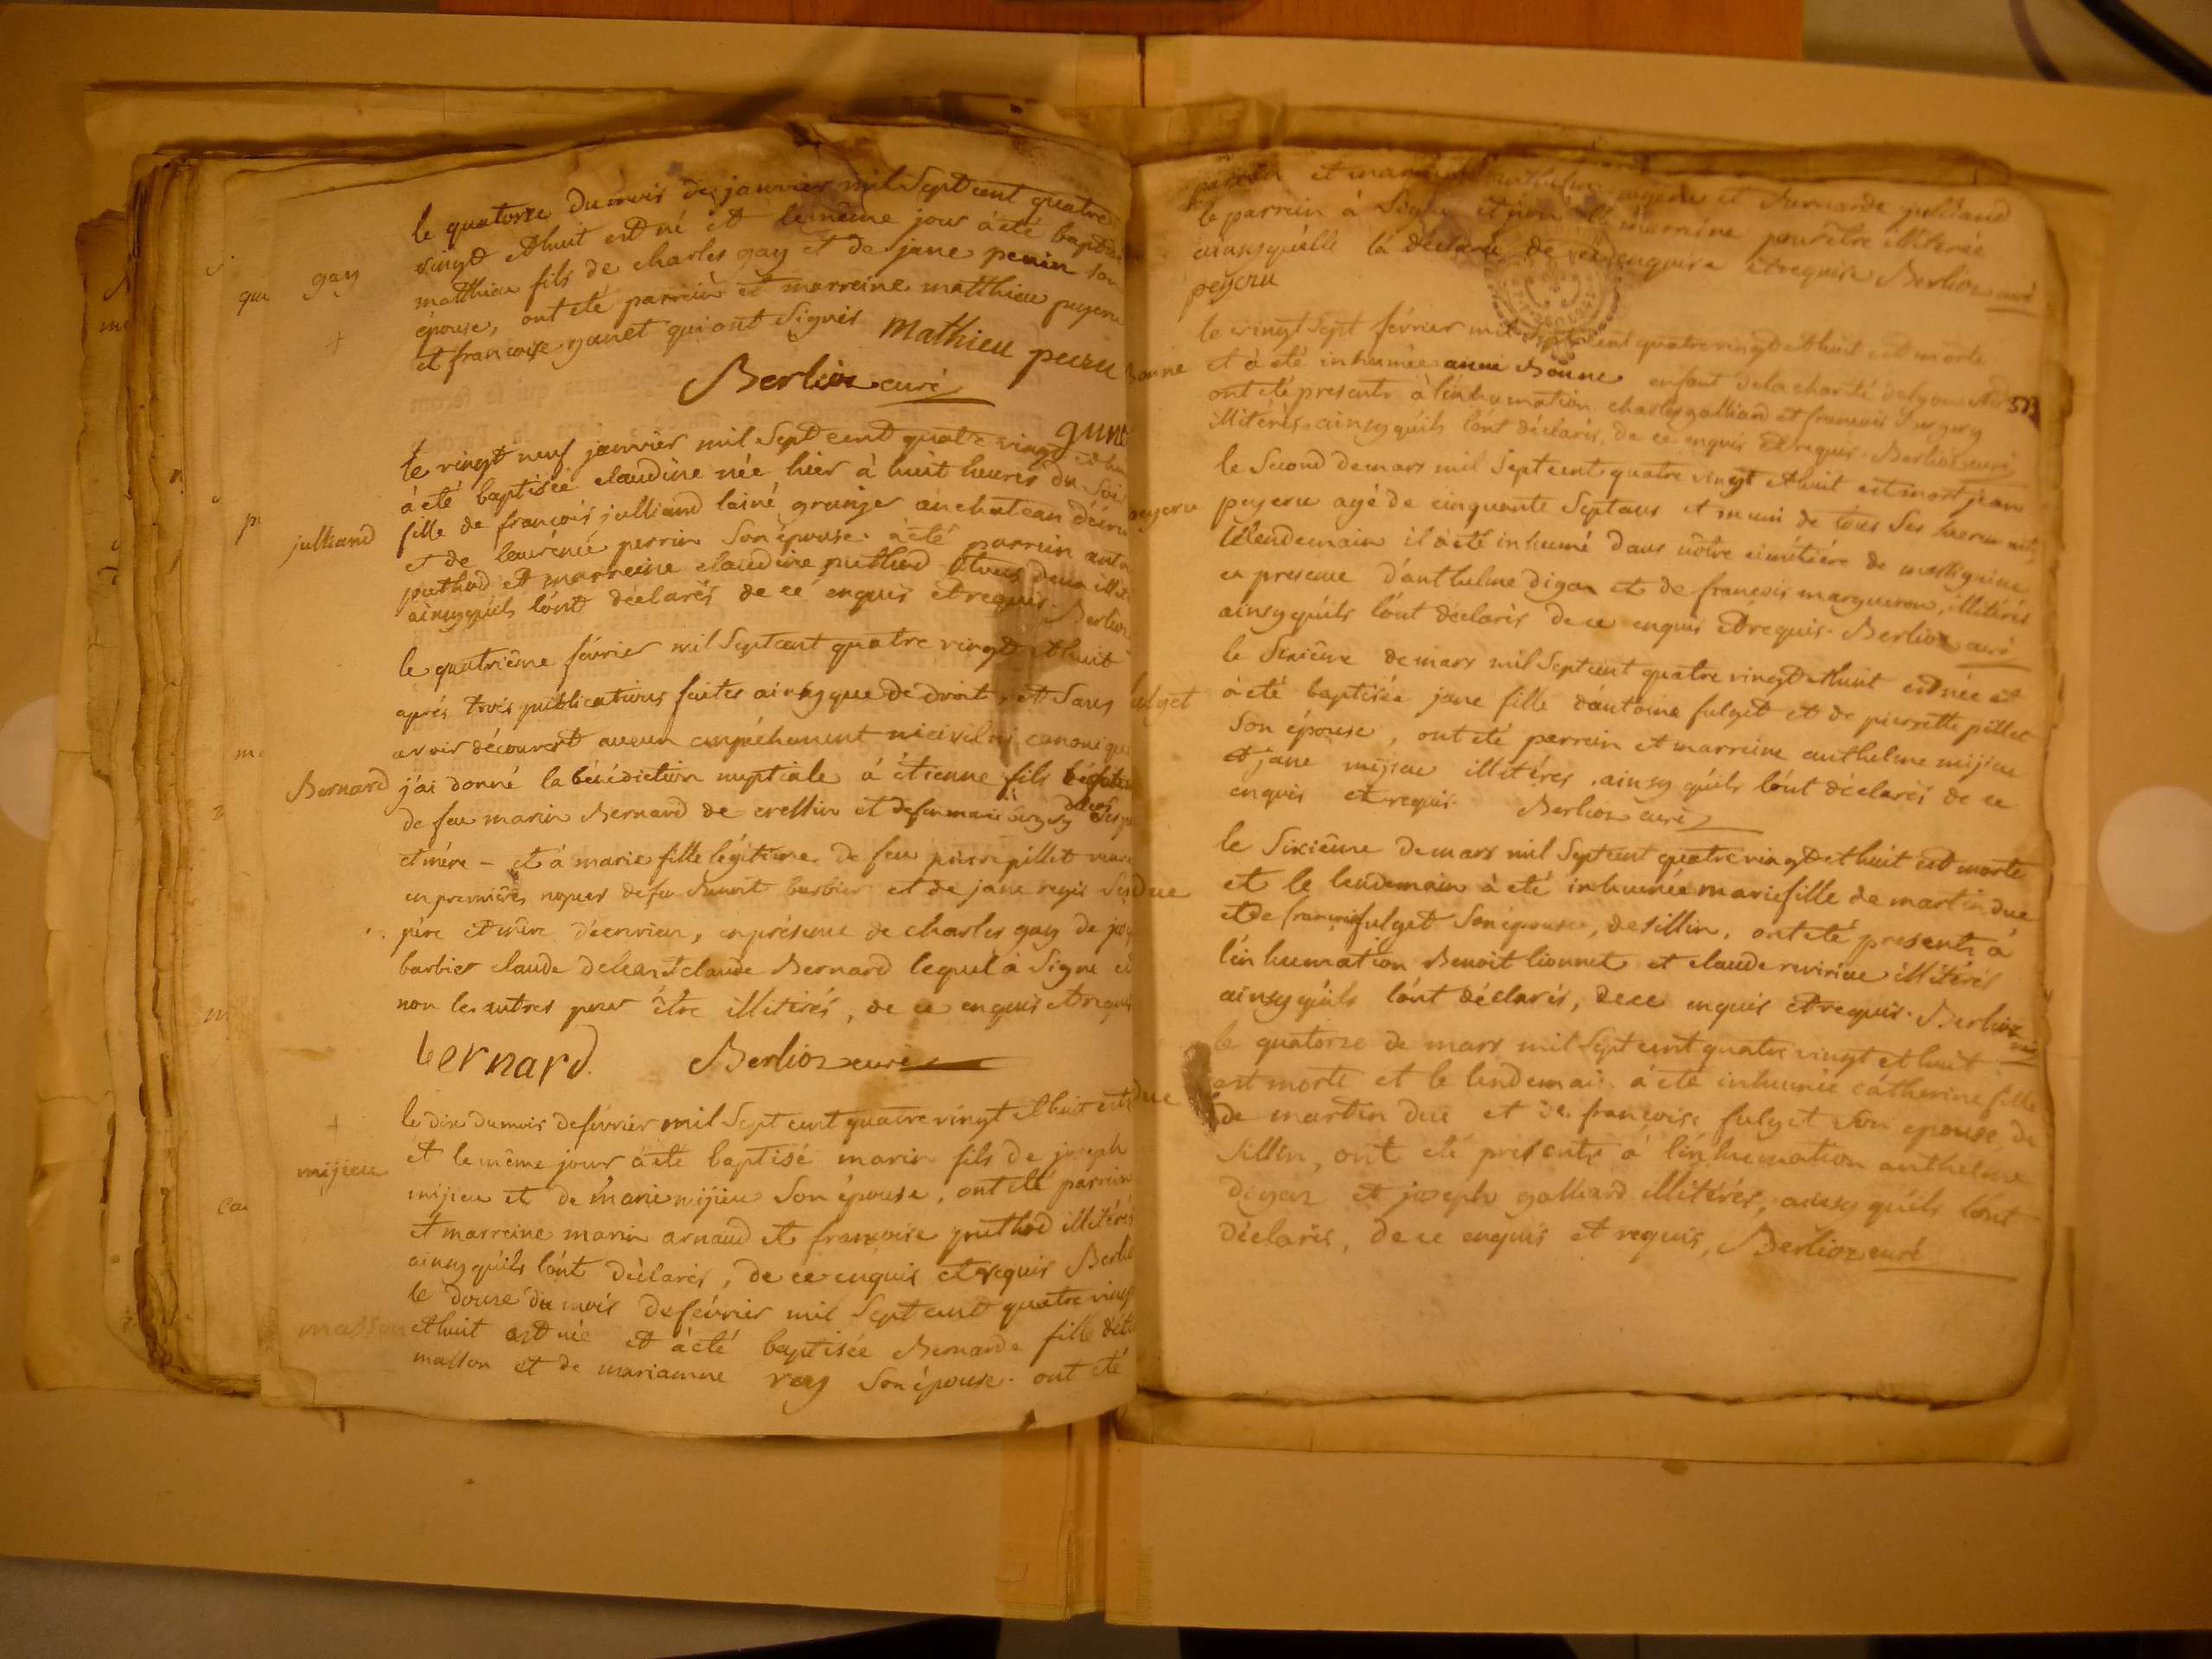 le quatorze du mois de janvier mil Sept cent quatre
vingt et huit est né et le même jour à été baptisé
matthieu fils de charles gay et de jane perrin son
épouse, ont été parrein et marreine matthieu pugeru
et francoise gunet qui ont Signés Mathieu peeru
gay
Berlioz curé
gunet
le vingt neuf janvier mil Sept cent quatre vingt et huit
à été baptisée claudine née hier à huit heures du Soir
fille de françois julliand lainé granjer au chateau
julliand
et de laurence perrin Son épouse. à été parrein
puthod et marreine claudine puthod tous deux
ainsy quils lónt déclarés de ce enquis et requis. Berlioz
le quatriême février mil Sept cent quatre vingt et huit
aprés trois publications faites ainsy que de droit, et Sans
avoir découvert aucun empéchement ni civil ni canonique
Bernard
j'ai donné la bénédiction nuptiale à étienne fils légitime
de feu marin Bernard de cressin et de feu marie
et mére - et à marie fille légitime de feu pierre pillet
en premières nopces de feu Benoit barbier et de jane regis Ses
pére et mére, en présence de charles gay de
barbier claude et claude Bernard lequel à Signé et
non les autres pour être illitérés, de ce enquis et requis
bernard. Berlioz curé
le dix du mois de février mil Sept cent quatre vingt et huit est
et le même jour à été baptisé marin fils de joseph
mijieu
mijieu et de marie mijieu Son épouse, ont été parrein
et marreine marin arnaud et francoise puthod illitérés
ainsy qúils lónt déclarés, de ce enquis et requis Berlioz
le douze du mois de février mil Sept cent quatre vingt
masson
et huit est née et à été baptisée Bernarde fille
masson et de marianne rey Son épouse. ont été
parrein et marreine pugeru et Bernarde julliand
le parrein à Signé et non la marreine pour être illitérée
ainsy quélle lá déclaré de ce enquise et requise Berlioz curé
peyseru
le vingt Sept février mil Sept cent quatre vingt et huit est morte
Bonne
et à été inhumée anne Bonne enfant de la charité de lyon
ont été presents à línhumation charles galliard et francois
illitérés ainsy qúils lónt déclarés, de ce enquis et requis. Berlioz curé
le Second de mars mil Sept cent quatre vingt et huit est mort jean
pugeru
pugeru agé de cinquante Sept ans et muni de tous Ses
le lendemain il à été inhumé dans nôtre cimétiére de massignieu
en presence dánthelme digon et de francois margueron, illitérés
ainsy qúils lónt déclarés de ce enquis et requis. Berlioz curé
le Sixiême de mars mil Sept cent quatre vingt et huit est née et
fulget
à été baptisée jane fille dántoine fulget et de pierrette pillet
Son épouse, ont été parrein et marreine anthelme mijieu
et jane mijieu illitéres, ainsy qúils lónt déclarés de ce
enquis et requis. Berlioz curé
le Sixiême de mars mil Sept cent quatre vingt et huit est morte
due
et le lendemain à été inhumée marie fille de martin due
et de françoise fulget Son épouse, de sillin, ont été presents à
línhumation Benoit lionnet et claude revirieu illitérés
ainsy qúils lónt déclarés, de ce enquis et requis. Berlioz curé
le quatorze de mars mil Sept cent quatre vingt et huit
due
est morte et le lendemain à été inhumée cátherine fille
de martin due et de françoise fulget Son épouse, de
Sillin, ont été presents à línhumation anthelme
digon et joseph galliard illitérés, ainsy qúils lónt
déclarés, de ce enquis et requis, Berlioz curé